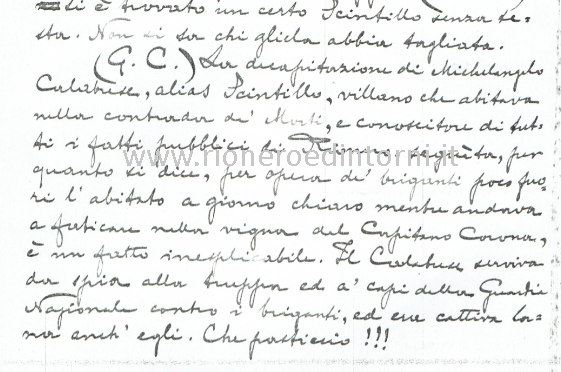 si è trovato un certo Scintillo senza te-
sta. Non si sa chi gliela abbia tagliata.
(G. C.) La decapitazione di Michelangelo
Calabrese, alias Scintillo, villano che abitava
nella contrada de' Morti, e conoscitore di tut-
ti i fatti pubblici di Rionero seguìta, per
www.rioneroedintorni.it
quanto si dice, per opera de' briganti poco fuo-
ri l'abitato a giorno chiaro mentre andava
a faticare nella vigna del Capitano Corona,
è un fatto inesplicabile. Il Calabrese serviva
da spia alla truppa ed a' capi della Guardia
Nazionale contro i briganti, ed era cattiva la-
na anch'egli. Che pasticcio!!!